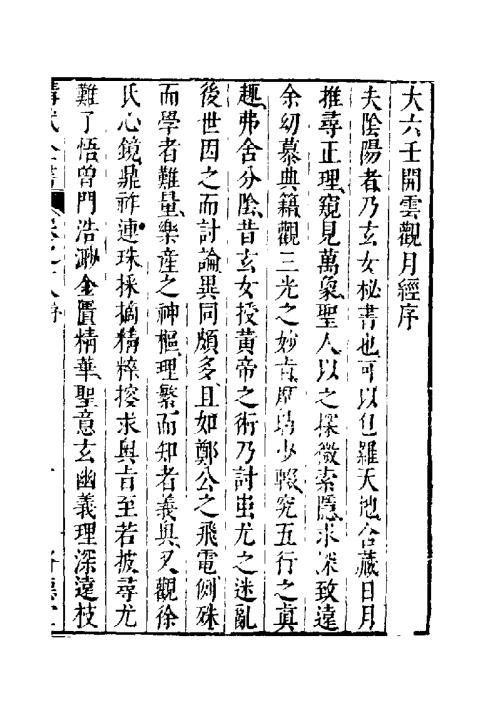 大六壬開雲觀月經序
夫陰陽者乃玄女秘書也可以包羅天地含藏日月
推尋正理窺見萬象聖人以之探微索隱求深致遠
余幼慕典籍觀三光之妙旨磨勵少輟究五行之真
趣弗舍分陰昔玄女授黄帝之術乃討蚩尤之迷亂
後世因之而討論異同頗多且如鄭公之飛電側殊
而學者難量樂産之神樞理繁而知者義奥又觀徐
氏心鏡鼎祚連珠採摘精粹控求奥旨至若披尋尤
難了悟曽門浩渺金匱精華聖意玄幽義理深遠枝